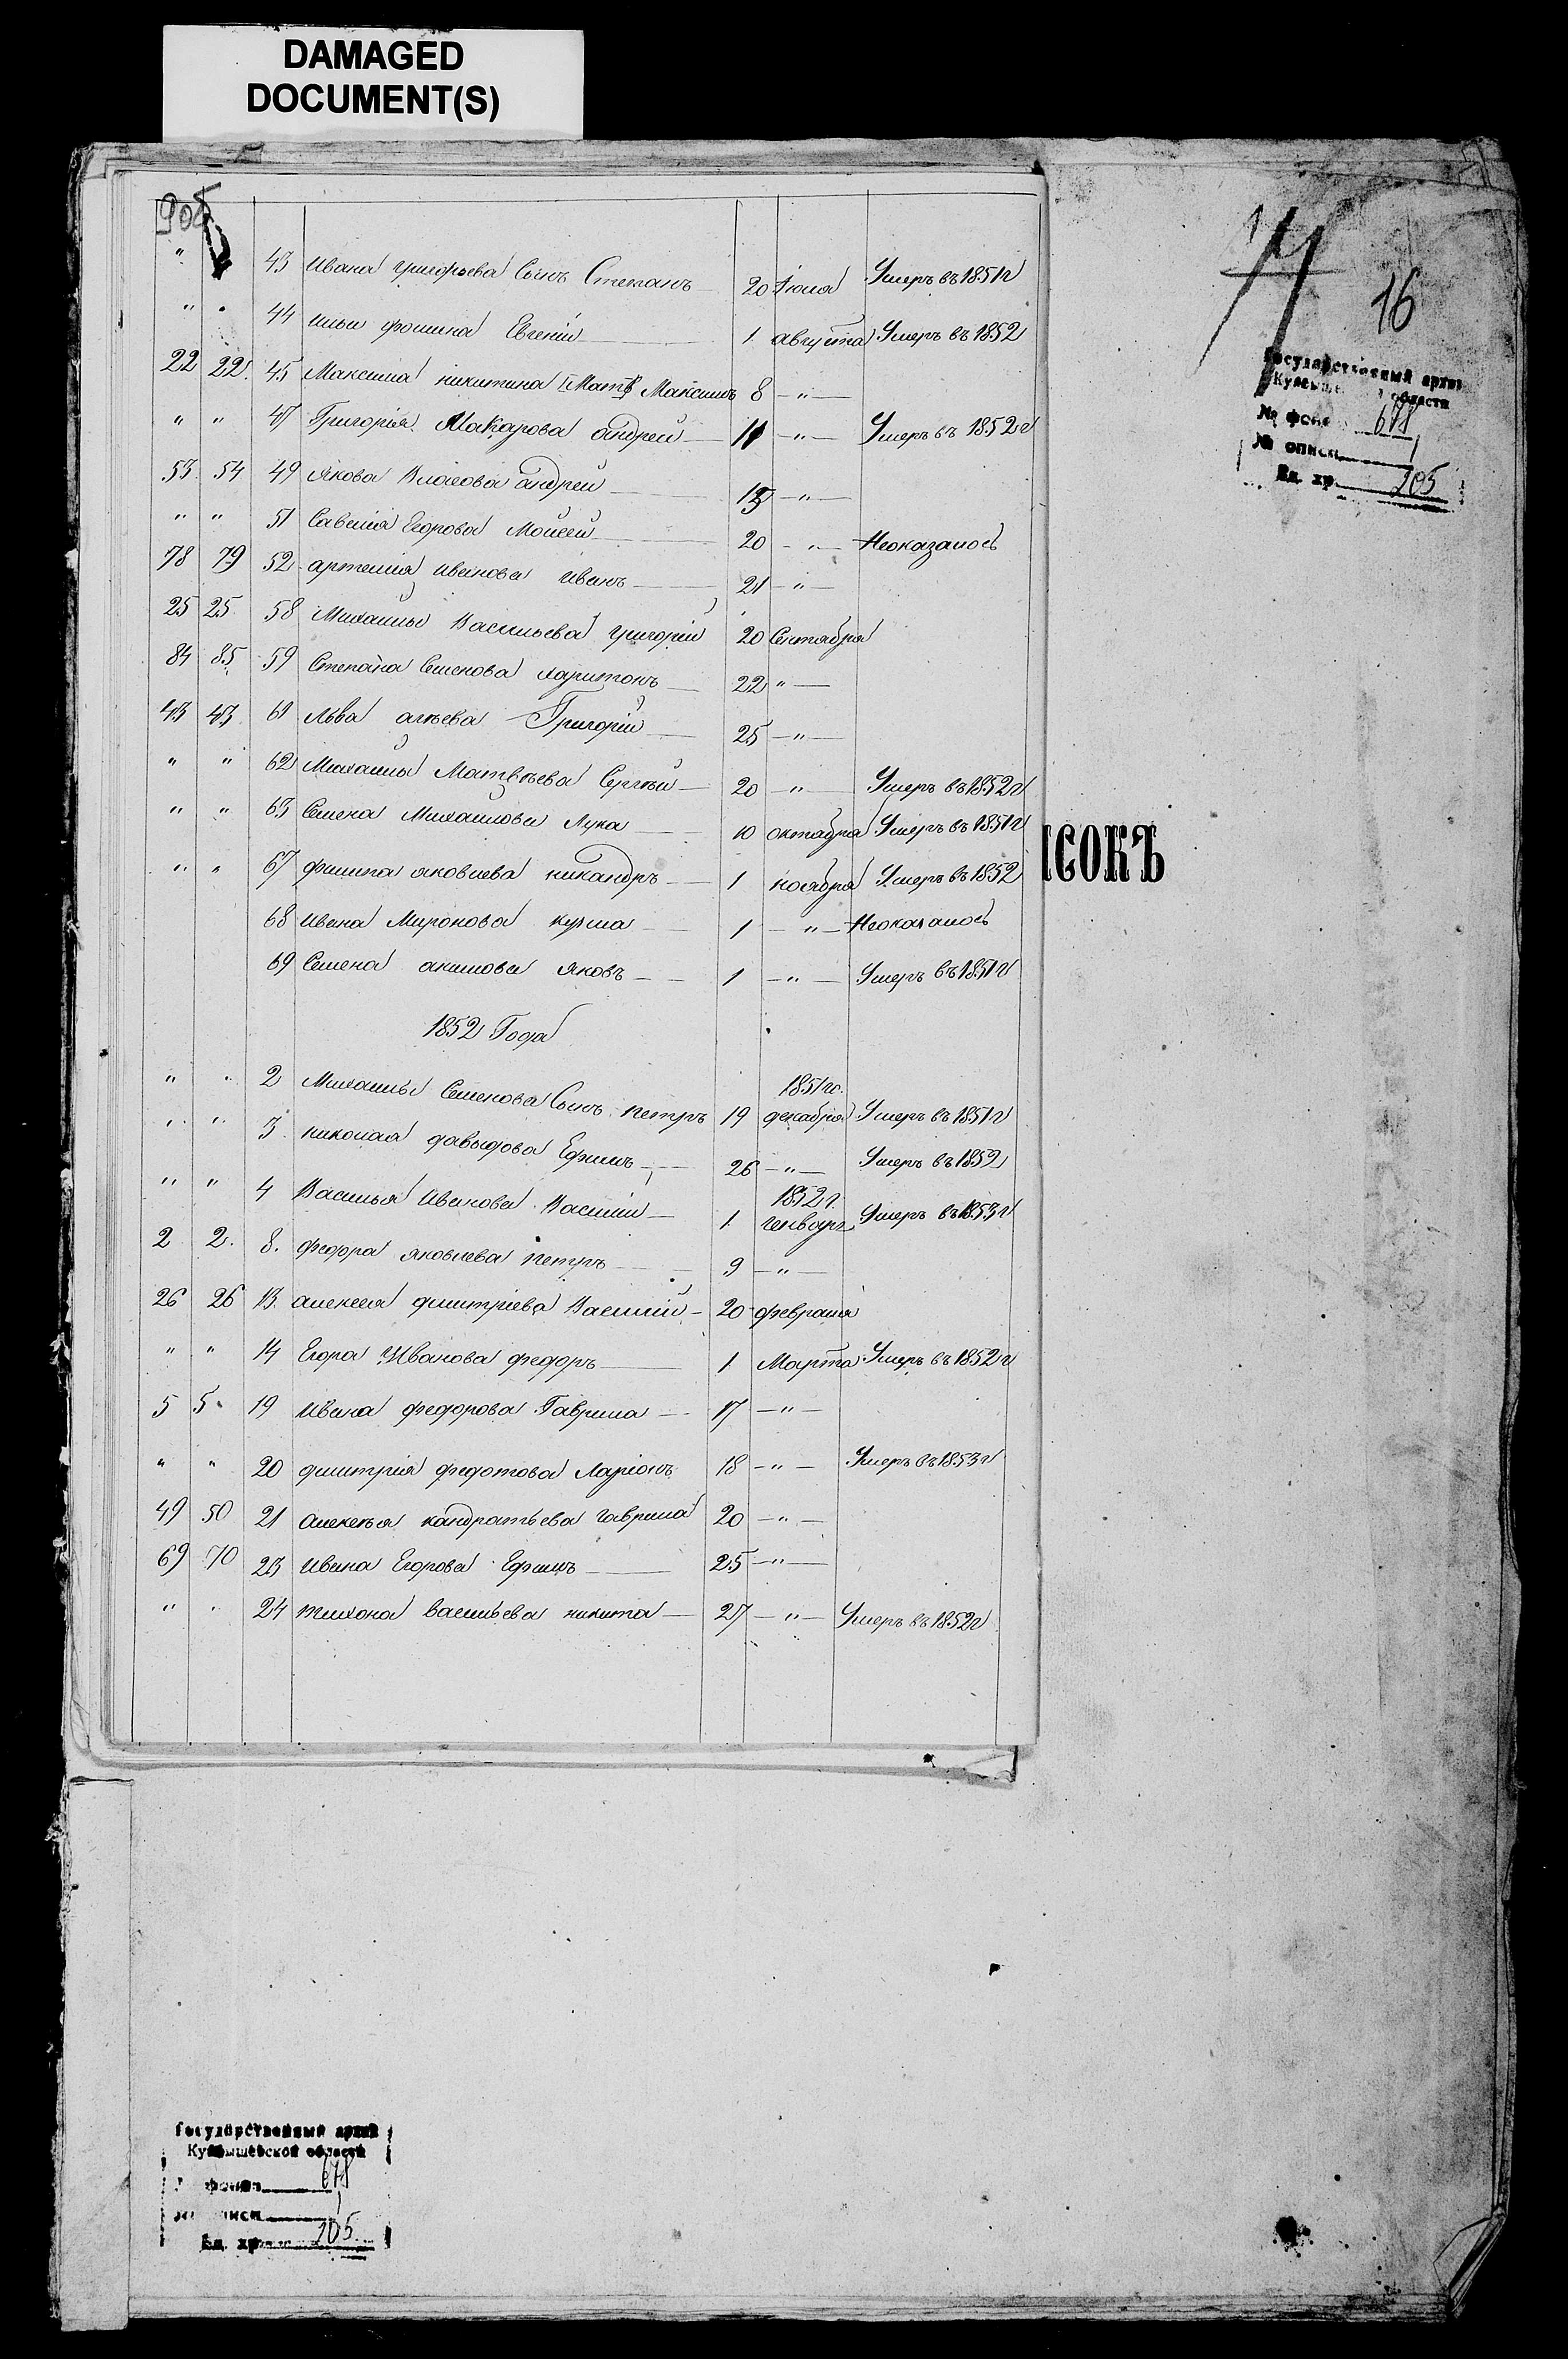 DAMAGED
DOCUMENT(S)
905
" 43 Ивана Григорьева Сынъ Степанъ 20 Июля Умеръ въ 1851 г
" " 44 Ильи Фомина Евгений 1 августа Умеръ въ 1852
22 22. 45 Максима никитина Максимъ 8 — " —
" " 47 Григорія Макарова андрей 11 — " — Умеръ въ 1852 г
53 54 49 Якова Власова андрей — " —
" " 51 Савелія Егорова Моисей 20 — " — Неоказалось
78 79 52 артемія иванова иванъ 21 — " —
25 25 58 Михайлы Васильева григорій 20 Сентября
84 85 59 Степана Семенова харитонъ 22 " —
43 43 61 Льва Григорій 25 — " —
" " 62 Михайлы Матвѣева Сергѣй 20 — " — Умеръ въ 1852 г
" " 63 Семена Михайлова Лука 10 октября Умеръ въ 1851 г
" " 67 филипа яковлева никандръ 1 ноября Умеръ въ 1852
68 ивана Миронова кузма 1 — " — Неоказалось
69 Семена акимова яковъ 1 — " — Умеръ въ 1851 г
1852 Года
1851 го.
" " 2 Михайлы Семенова Сынъ петръ 19 декабря Умеръ въ 1851 г
" " 3 николая давыдова Ефимъ 26 — " — Умеръ въ 1852
1852 г.
" " 4 Василья Иванова Василій 1 генваря Умеръ въ 1853 г
2 2. 8. федора яковлева петръ 9 — " —
26 26 13 алексея дмитріева Василій 20 февраля
" " 14 Егора Иванова федоръ 1 Марта Умеръ въ 1852 г
5 5 19 ивана федорова Гаврила 17 — " —
" " 20 дмитрія федотова Ларіонъ 18 — " — Умеръ въ 1853 г
49 50 21 алексѣя кандратьева гаврила 20 — " —
69 70 23 ивана Егорова Ефимъ 25 — " —
" " 24 тихона васильева никита 27 — " — Умеръ въ 1852 г
1
16
Государственный архив
Куйбышевской области
№ фонд 678
№ описи 1
Ед. хр. 205
ИСОКЪ
Государственный архив
Куйбышевской области
№ фонда 678
№ описи 1
Ед. хр. 205